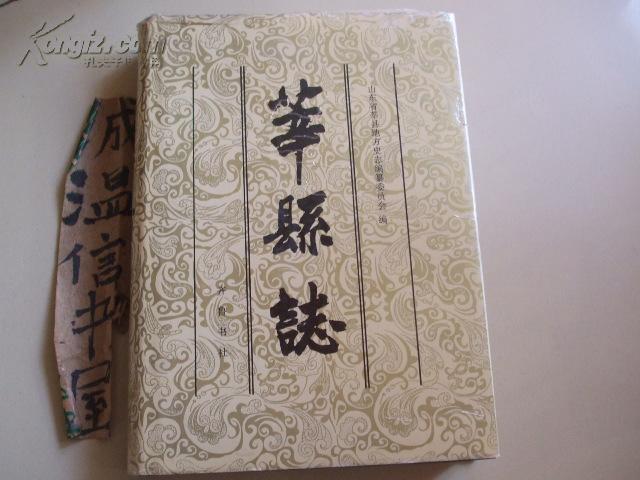 Kongfz.com
孔夫子旧书网
山东省莘县地方史志编纂委员会 编
莘縣誌
齐鲁书社
成温信书屋